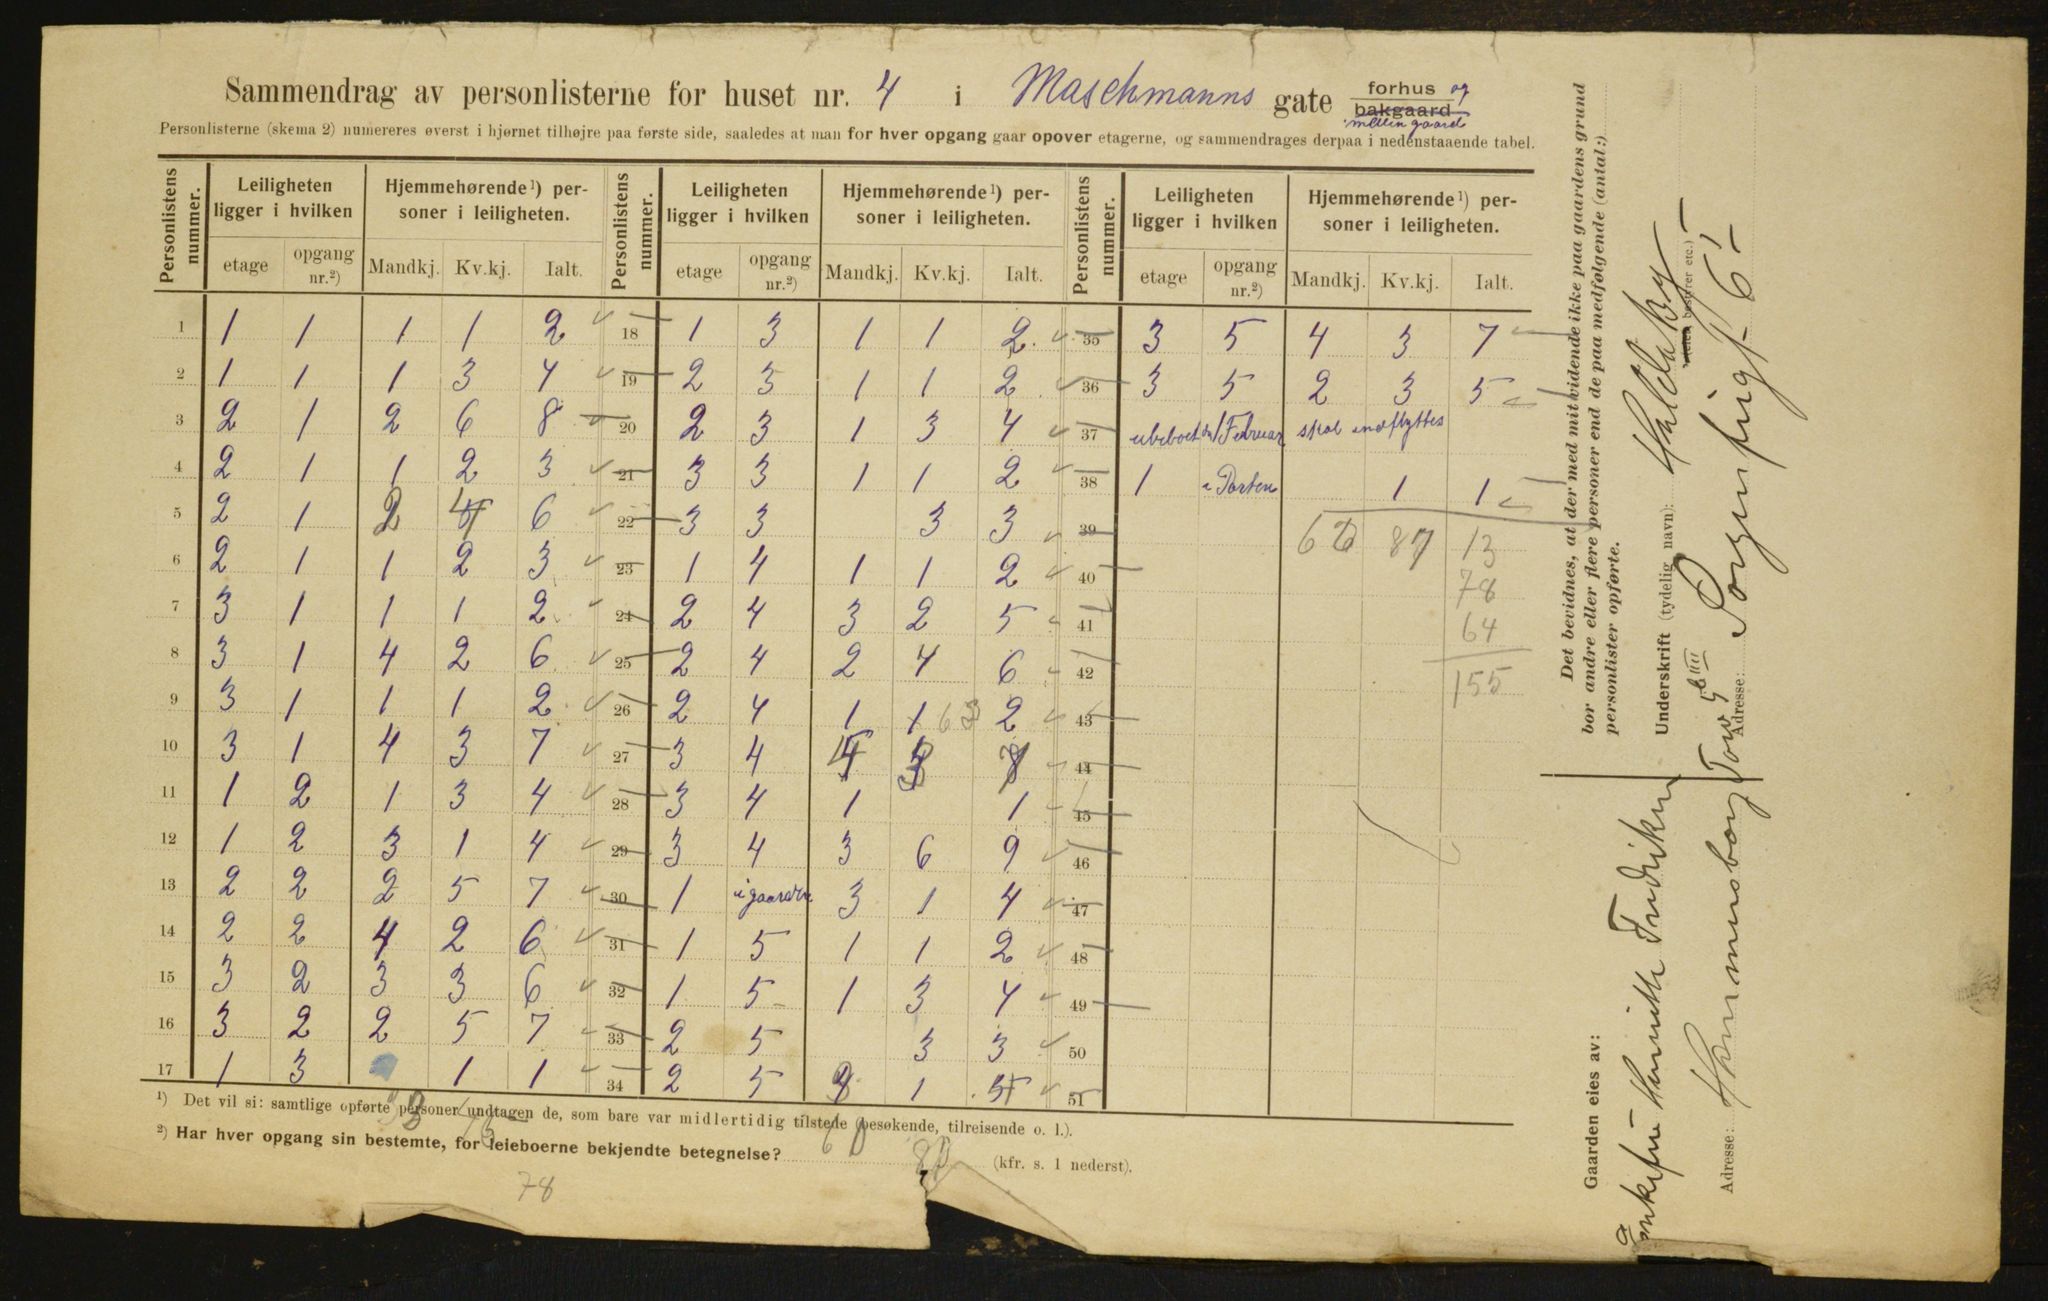 Sammendrag av personlisterne for huset nr. 4 i Maschmanns gate forhus og
bakgaard
mellingaard
Personlisterne (skema 2) numereres øverst i hjørnet tilhøjre paa første side, saaledes at man for hver opgang gaar opover etagerne, og sammendrages derpaa i nedenstaaende tabel.
Personlistens nummer. Leiligheten ligger i hvilken Hjemmehørende¹) personer i leiligheten. Personlistens nummer. Leiligheten ligger i hvilken Hjemmehørende¹) personer i leiligheten. Personlistens nummer. Leiligheten ligger i hvilken Hjemmehørende¹) personer i leiligheten.
etage opgang nr.²) Mandkj. Kv.kj. Ialt. etage opgang nr.²) Mandkj. Kv.kj. Ialt. etage opgang nr.²) Mandkj. Kv.kj. Ialt.
1 1 1 1 1 2 18 1 3 1 1 2 35 3 5 4 3 7
2 1 1 1 3 4 19 2 3 1 1 2 36 3 5 2 3 5
3 2 1 2 6 8 20 2 3 1 3 4 37 ubeboet Februar skal indflyttes
4 2 1 1 2 3 21 3 3 1 1 2 38 1 i Porten 1 1
5 2 1 2 4 6 22 3 3 3 3 39 87 13
6 2 1 1 2 3 23 1 4 1 1 2 40 78
7 3 1 1 1 2 24 2 4 3 2 5 41 64
8 3 1 4 2 6 25 2 4 2 4 6 42 155
9 3 1 1 1 2 26 2 4 1 1 2 43
10 3 1 4 3 7 27 3 4 4 3 7 44
11 1 2 1 3 4 28 3 4 1 1 45
12 1 2 3 1 4 29 3 4 3 6 9 46
13 2 2 2 5 7 30 1 i gaarden 3 1 4 47
14 2 2 4 2 6 31 1 5 1 1 2 48
15 3 2 3 3 6 32 1 5 1 3 4 49
16 3 2 2 5 7 33 2 5 3 3 50
17 1 3 1 1 34 2 5 1 51
¹) Det vil si: samtlige opførte personer undtagen de, som bare var midlertidig tilstede (besøkende, tilreisende o. l.).
²) Har hver opgang sin bestemte, for leieboerne bekjendte betegnelse? (kfr. s. 1 nederst).
78
Det bevidnes, at der med mit vidende ikke paa gaardens grund
bor andre eller flere personer end de paa medfølgende (antal:)
personlister opførte.
Underskrift (tydelig navn):
(eier, bestyrer etc.)
Adresse:
Gaarden eies av:
Enkefru
Adresse: